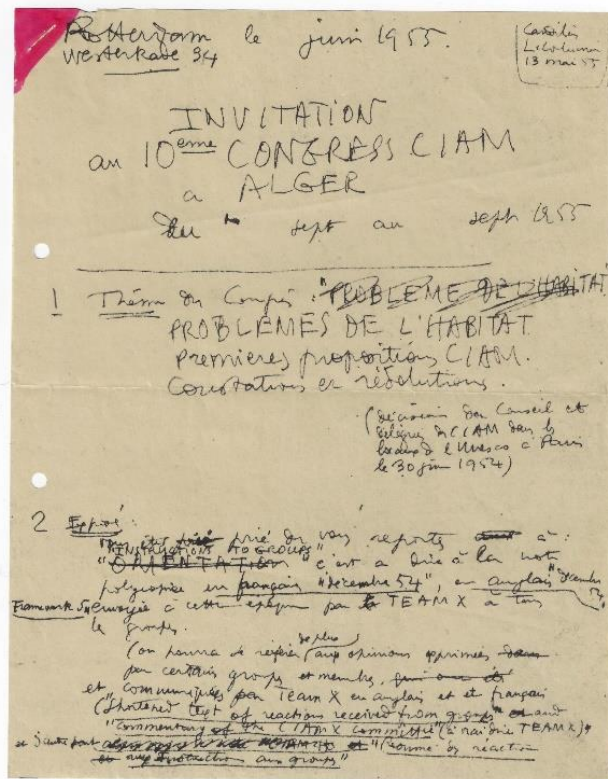 Rotterdam le juin 1955.
Westerkade 34
13 mai 55
INVITATION
au 10ème CONGRESS CIAM
a ALGER
du sept au sept 1955
1 Thème du Congrès : "PROBLEME DE L'HABITAT
PROBLEMES DE L'HABITAT
premieres propositions CIAM.
Constatations en résolutions.
(décision du Conseil et
délégués du CIAM dans les
de l'Unesco a Paris
le 30 juin 1954)
2 Exposé:
prié de vous reporter à :
"INSTRUCTIONS TO GROUPS"
"ORIENTATION" c'est a dire à la note
polycopiée en français "décembre 54", en anglais
Framework 5, envoyée à cette époque par le TEAM X à tous
le groupes.
de plus
(on pourra se référer aux opinions exprimées
par certains groupes et membres,
et communiquées par Team X en anglais et français
(Shortened text of reactions received from groups" and
"Commentary of the CIAM X Committee" (TEAM X)
et d'autre part "résumé des reaction
aux groups"